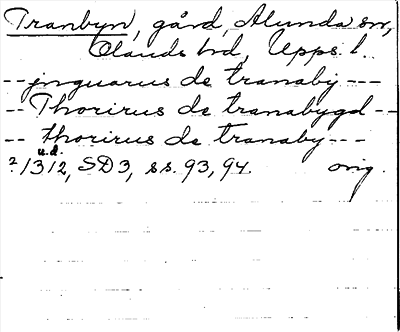 Tranbyn, gård, Alunda sn,
Olands hd, Upps. l.
-- jnguarus de tranaby ---
-- Thorirus de tranabygd --
-- thorirus de tranaby ---
u.d.
? 1312, SD3, ss. 93, 94. orig.